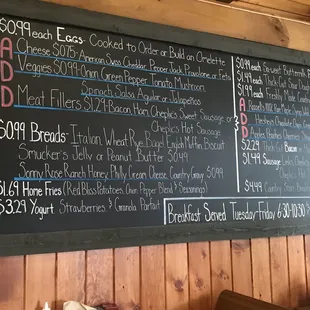 $0.99 each Eggs - Cooked to Order or Build an Omelette
ADD
Cheese $0.75 - American Swiss Cheddar Pepper Jack Provalone or Feta
Veggies $0.99 - Onion Green Pepper Tomato Mushroom
Spinach Salsa Avocado or Jalapeños
Meat Fillers $1.29 - Bacon Ham Sweet Sausage or
Hot Sausage
$0.99 Breads - Italian Wheat Rye Bagel English Muffin Biscuit
Smucker's Jelly or Peanut Butter $0.49
Ranch Honey Philly Cream Cheese Country Gravy $0.99
$1.69 Home Fries (Red Bliss Potatoes Onion Pepper Blend & Seasonings)
$3.29 Yogurt Strawberries & Granola Parfait
$0.99 each Sweet Buttermilk
$1.49 each Thick Cut
$1.99 each Freshly Made
ADD
$2.29 Thick Cut Bacon
$1.49 Sausage Links
$4.49 Country
Breakfast Served Tuesday-Friday 6:30-10:30